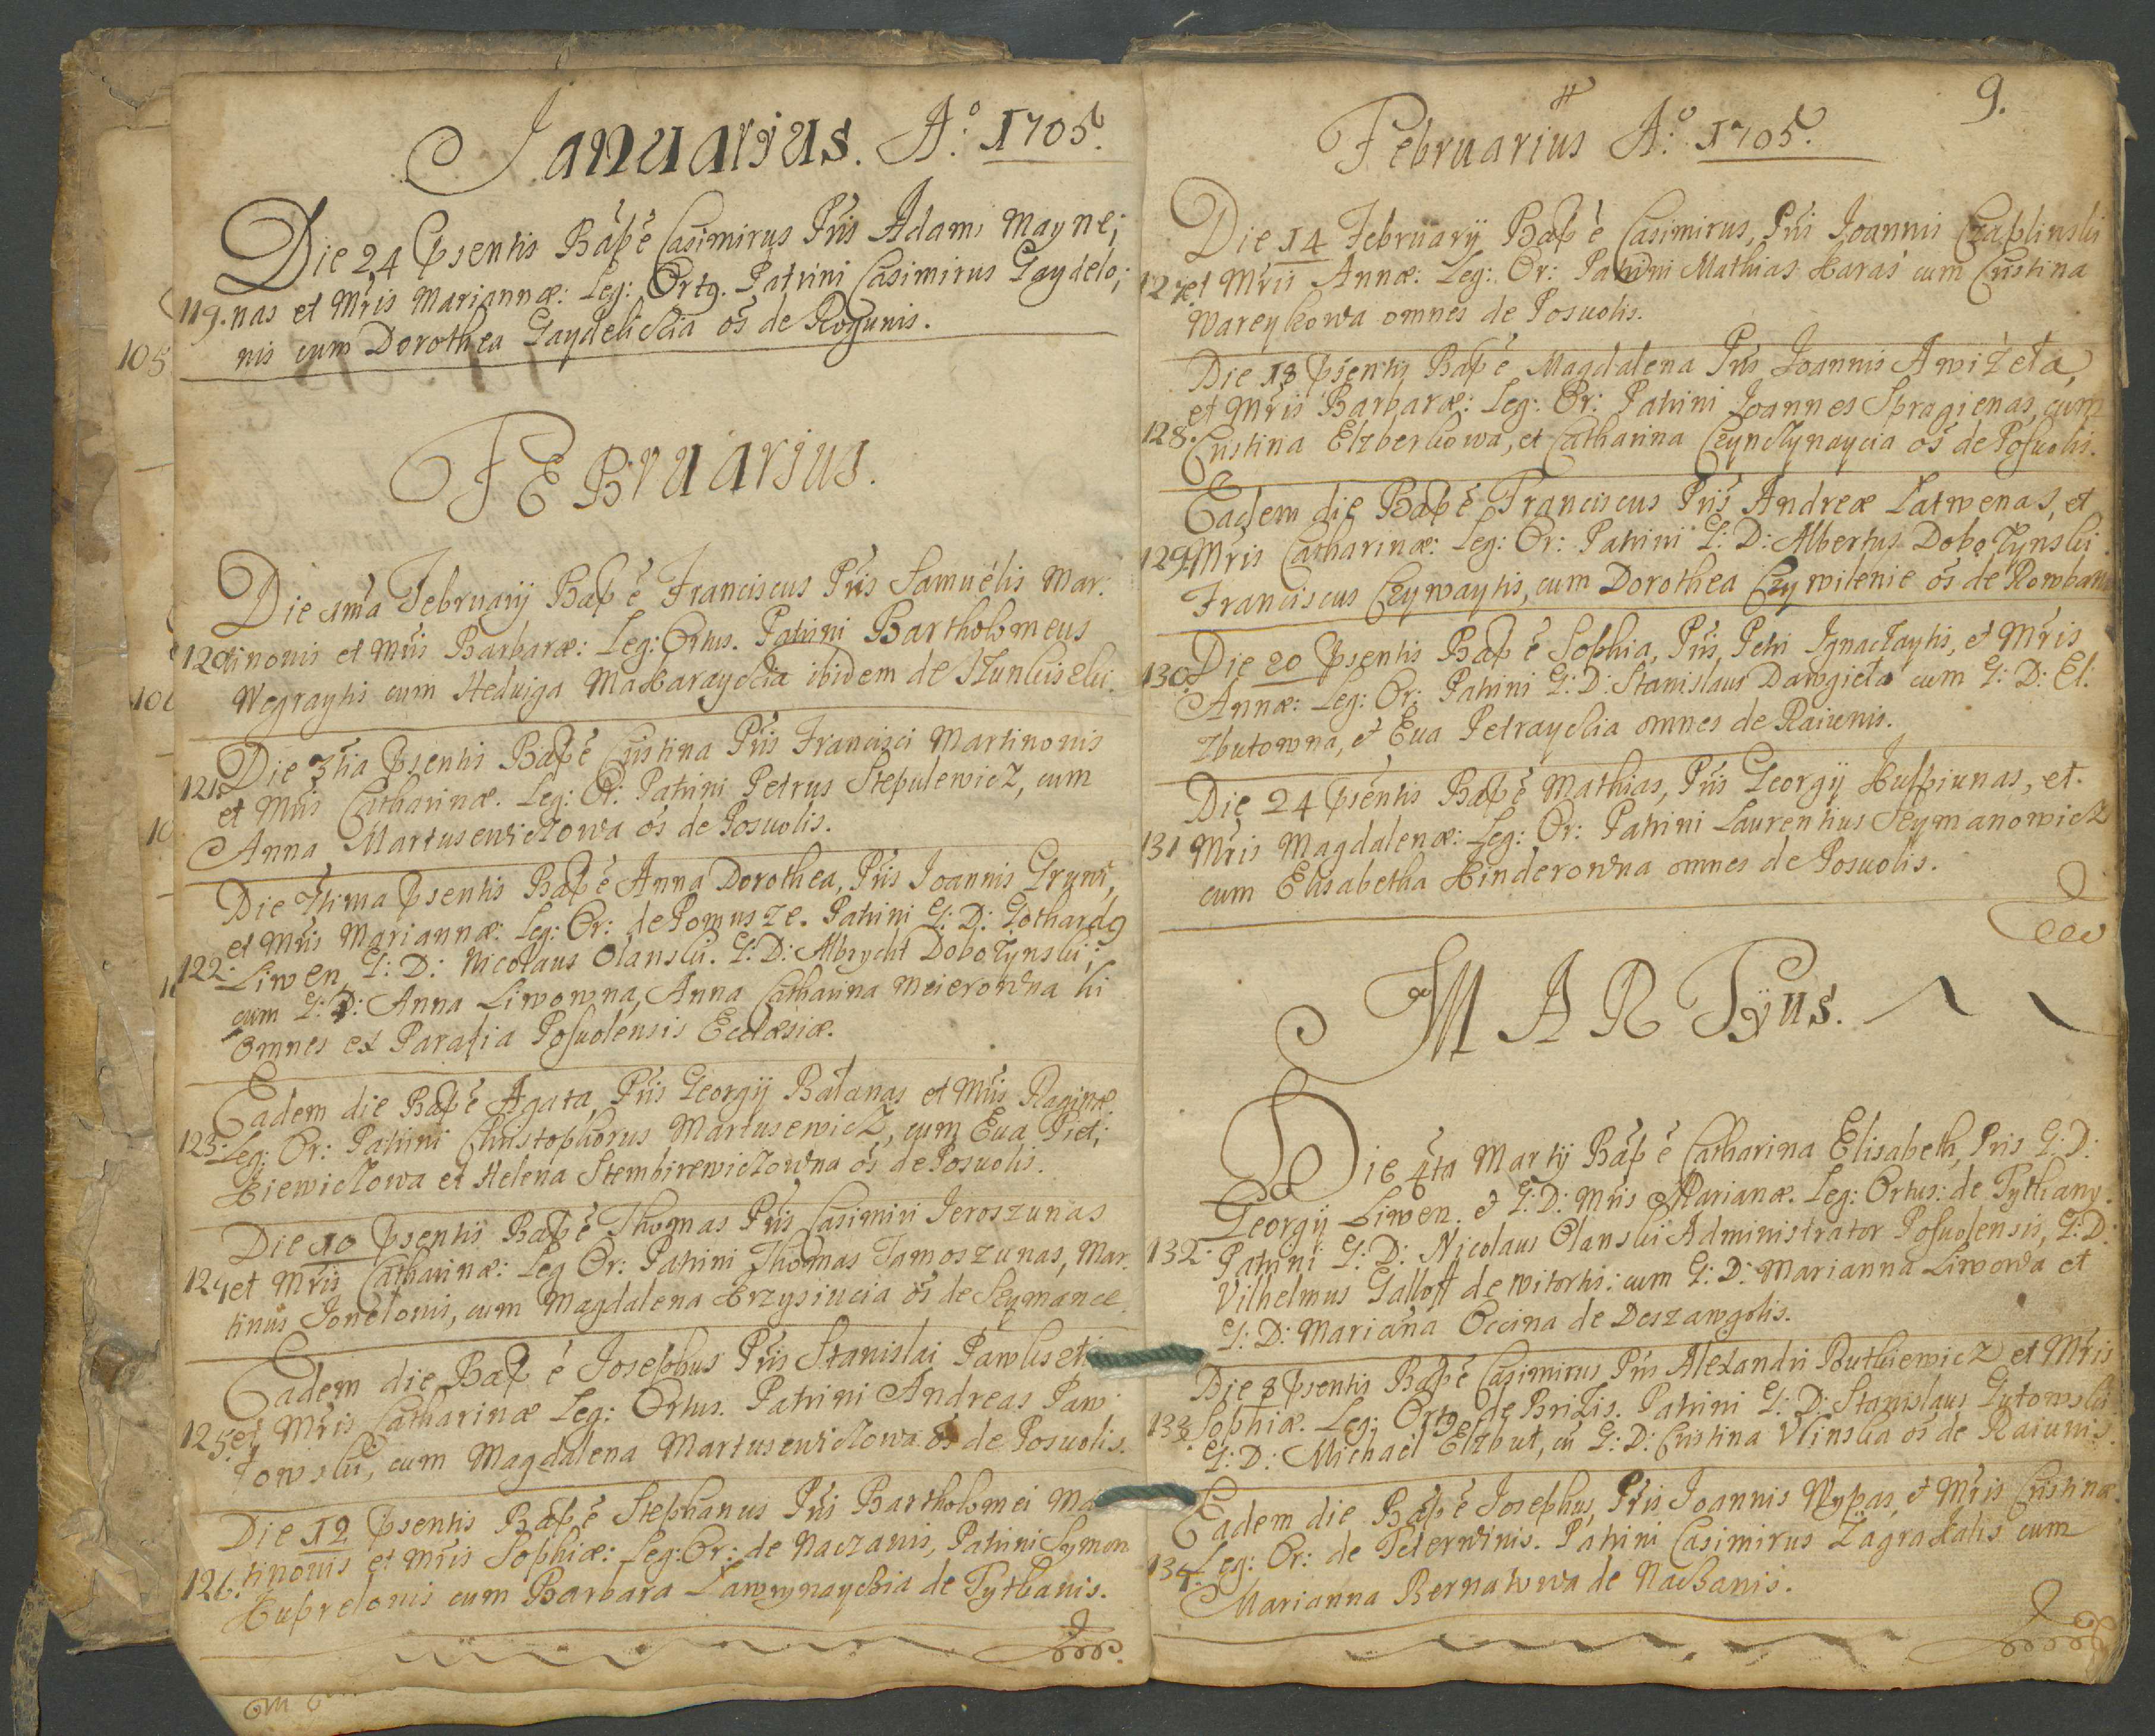 Januarius. A:o 1705.
Die 24 Psentis Bap'e Casimirus Pris Adami Mayne;
119. nas et Mris Mariannæ: Leg: Ort9. Patrini Casimirus Gaydelo;
nis cum Dorothea Gaydelickia os de Rogunis.
105
FEBruarius.
Die 1ma February Bap e Franciscus Pris Samuelis Mar:
120. tinonis et Mris Barbaræ: Leg: Ortus. Patrini Bartholomeus
Wegraytis cum Heduiga ibidem de
121. Die 3tia Psentis Bap e Cristina Pris Francisci Martinonis
et Mris Catharinæ. Leg: Or: Patrini Petrus Stepulewicz, cum
Anna Martusewiczowa os de Posuolis.
Die 7tima Psentis Bap e Anna Dorothea, Pris Joannis Grunt,
et Mris Mariannæ: Leg: Or: de Pomusze. Patrini G: D: Gothard9
122. Liwen, G: D: Nicolaus Olanski. G: D: Albrycht Dobozynski;
cum G: D: Anna Liwowna, Anna Catharina Meierowna hi
omnes ex Parafia Posuolensis Ecclæsiæ.
Eadem die Bap e Agata, Pris Georgij Balanas et Mris Raginæ
123. Leg: Or: Patrini Christophorus Martusewicz, cum Eua Piet;
kiewiczowa et Helena Stembirewiczowna os de Posuolis.
Die 10 Psentis Bap e Thomas Pris Casimiri Jeroszunas
124. et Mris Catharinæ: Leg Or: Patrini Thomas Tamoszunas, Mar:
tinus Jonelonis, cum Magdalena Krzysiucia os de Seymance.
Eadem die Bap e Josephus Pris Stanislai
125. et Mris Catharinæ Leg: Ortus. Patrini Andreas Paw
lowski, cum Magdalena Martusewiczowa os de Posuolis.
Die 12 Psentis Bap e Stephanus Pris Bartholomei
126. tinonis et Mris Sophiæ: Leg: Or: de Naczanis, Patrini Symon
Kuprelonis cum Barbara Lawrynaychia de Tytkanis.
9.
Februarius A:o 1705.
Die 14 February Bap e Casimirus, Pris Joannis Czaplinski
127. et Mris Annæ: Leg: Or: Patrini Mathias Karas cum Cristina
Wareykowa omnes de Posuolis.
Die 18 Psentis Bap e Magdalena Pris Joannis Awizeta,
et Mris Barbaræ: Leg: Or: Patrini Joannes Spragienas, cum
128. Cristina Elzberkowa, et Catharina os de Posuolis.
Eadem die Bap e Franciscus Pris Andreæ Latwenas, et
129. Mris Catharinæ: Leg: Or: Patrini G: D: Albertus Dobozynski
Franciscus Czywaytis, cum Dorothea Czywilenie os de
130. Die 20 Psentis Bap e Sophia, Pris Petri Ignaczaytis, et Mris
Annæ: Leg: Or: Patrini G: D: Stanislaus Dawgieta cum G: D: El:
zbutowna, et Eua Petrayckia omnes de Raiunis.
Die 24 Psentis Bap e Mathias, Pris Georgij Kuspiunas, et
131 Mris Magdalenæ: Leg: Or: Patrini Laurentius Szymanowicz
cum Elisabetha Kinderowna omnes de Posuolis.
MARTyus.
Die 4ta Martij Bap e Catharina Elisabeth, Pris G: D:
Georgij Liwen. et G: D: Mris Marianæ. Leg: Ortus: de Tytkany.
132. Patrini G: D: Nicolaus Olanski Administrator Posuolensis, G: D:
Vilhelmus Galloff de Witortis: cum G: D: Marianna Liwowa et
G: D: Mariana Occina de Deszawgolis.
Die 8 Psentis Bap e Casimirus Pris Alexandri Rutkiewicz et Mris
133. Sophiæ. Leg: Ort9 de Brizis. Patrini G: D: Stanislaus Gutowski
G: D: Michael Elzbut, cu G: D: Cristina Vlinska os de Raiunis.
Eadem die Bap e Josephus, Pris Joannis Nypas, et Mris Cristinæ.
134. Leg: Or: de Teterwinis. Patrini Casimirus Zagrakalis cum
Marianna Bernatowa de Nackanis.